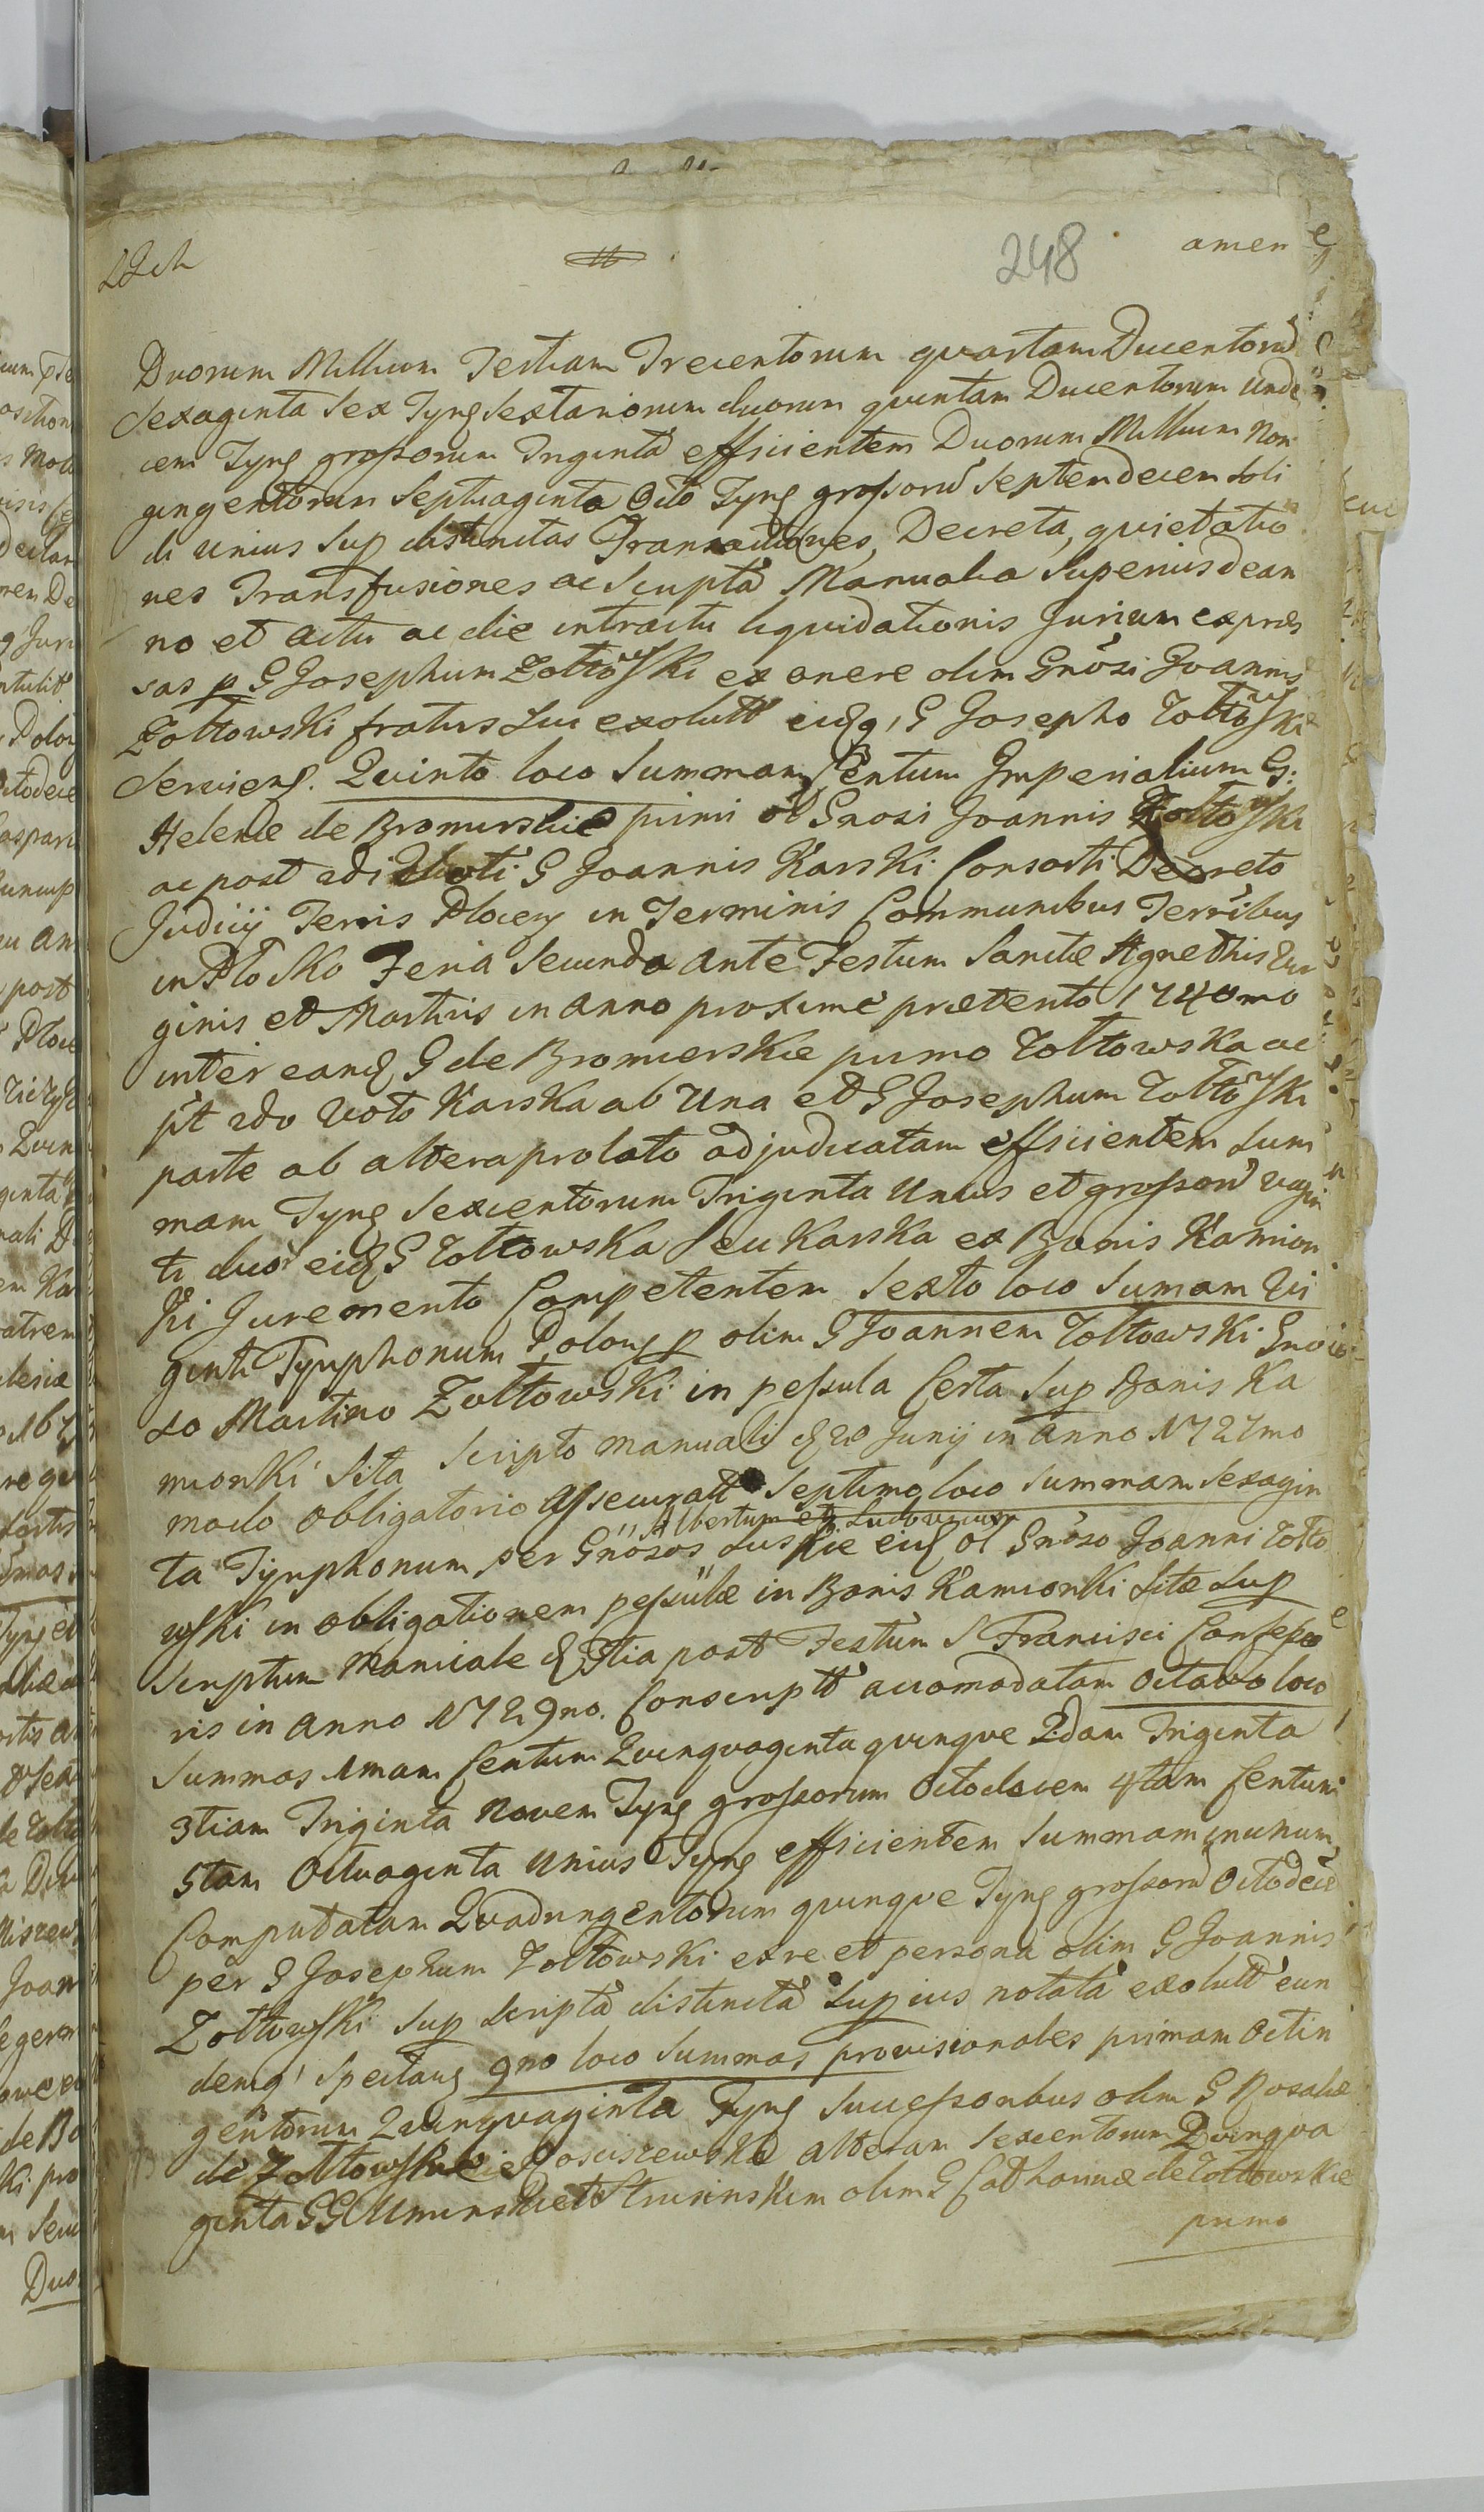 248 amen
Duorum Millium Tertiam Trecentorum quartam Ducentorũ
Sexaginta Sex Tynf Sextarionum duorum quintam Ducentorum Unde
cem Tynf grossorum Triginta efficientem Duorum Millium Non
gengentorum Septuaginta Octo Tynf grossorũ Septendecem Soli
di unius Sup distinctas Transactiones, Decreta, quietatio
nes Transfusiones ac Scripta Manualia Superius de an
no et actu ac die intractu liquidationis Jurium expres
sas p G Josephum Zołtowski ex onere olim Gnosi Joannis
Zołtowski fratris Sui exolutt G Josepho Zołtowski
Servienf. Quinto loco Summam Centum Imperialium G:
Helenæ de Bromirskie primi ol Gnosi Joannis Zołtowski
ac post 2di Voti G Joannis Karski Consorti Decreto
Judicij Terris Plocen in Terminis Communibus Terribus
in Płocko Feria Secunda ante Festum Sanctæ Agnethis Vir
ginis et Martiris in Anno proxime prætento 1740mo
inter eand G de Bromierskie primo Zołtowska ac
pt 2do Voto Karska ab Una et G Josephum Zołtowski
parte ab altera prolato adjudicatam efficientem Sum
mam Tynf Sexcentorum Triginta Unius et grossorũ vigin
ti duor eid G Zołtowska Seu Karska ex Bonis Kamion
ki Juremento Competentem Sexto loco Sumam Vi
ginti Tynphonum Polonf p olim G Joannem Zołtowski Gno
so Martino Zołtowski in pessula Certa Sup Bonis Ka
mionki Sita Scripto manuali d 20 Junij in Anno 1727mo
modo obligatorio assecuratt Septimo loco Summam Sexagin
Albertum et Ludovicum
ta Tynphonum per Gnosos Luskie eid ol Gnoso Joanni Zołto
wski in obligationem pessulæ in Bonis Kamionki Sitæ Sup
Scriptum Manuale d 3tia post Festum S Francisci Confesso
ris in Anno 1729no. Conscriptt accomodatam Octavo loco
Summas 1mam Centum Quinquaginta quinque 2dam Triginta
3tiam Triginta Novem Tynf grossorum Octodecem 4tam Centum
5tam Octuaginta Unius Tynf efficientem Summam in unum
Computatam Quadringentorum quinque Tynf grossorũ Octodecẽ
per G Josephum Zołtowski ex re et persona olim G Joannis
Zołtowski Sup Scripta distincta Sup ius notata exolutt eun
demq Spectanf 9no loco Summas provisionales primam Octin
gentorum Quinquaginta Tynf Successoribus olim G Rosaliæ
de Zołtowskie Kosciszewska alteram Sexcentorum Quinqua
ginta GG Uminskie et Strusinskim olim G Catharinæ de Zołtowskie
primo